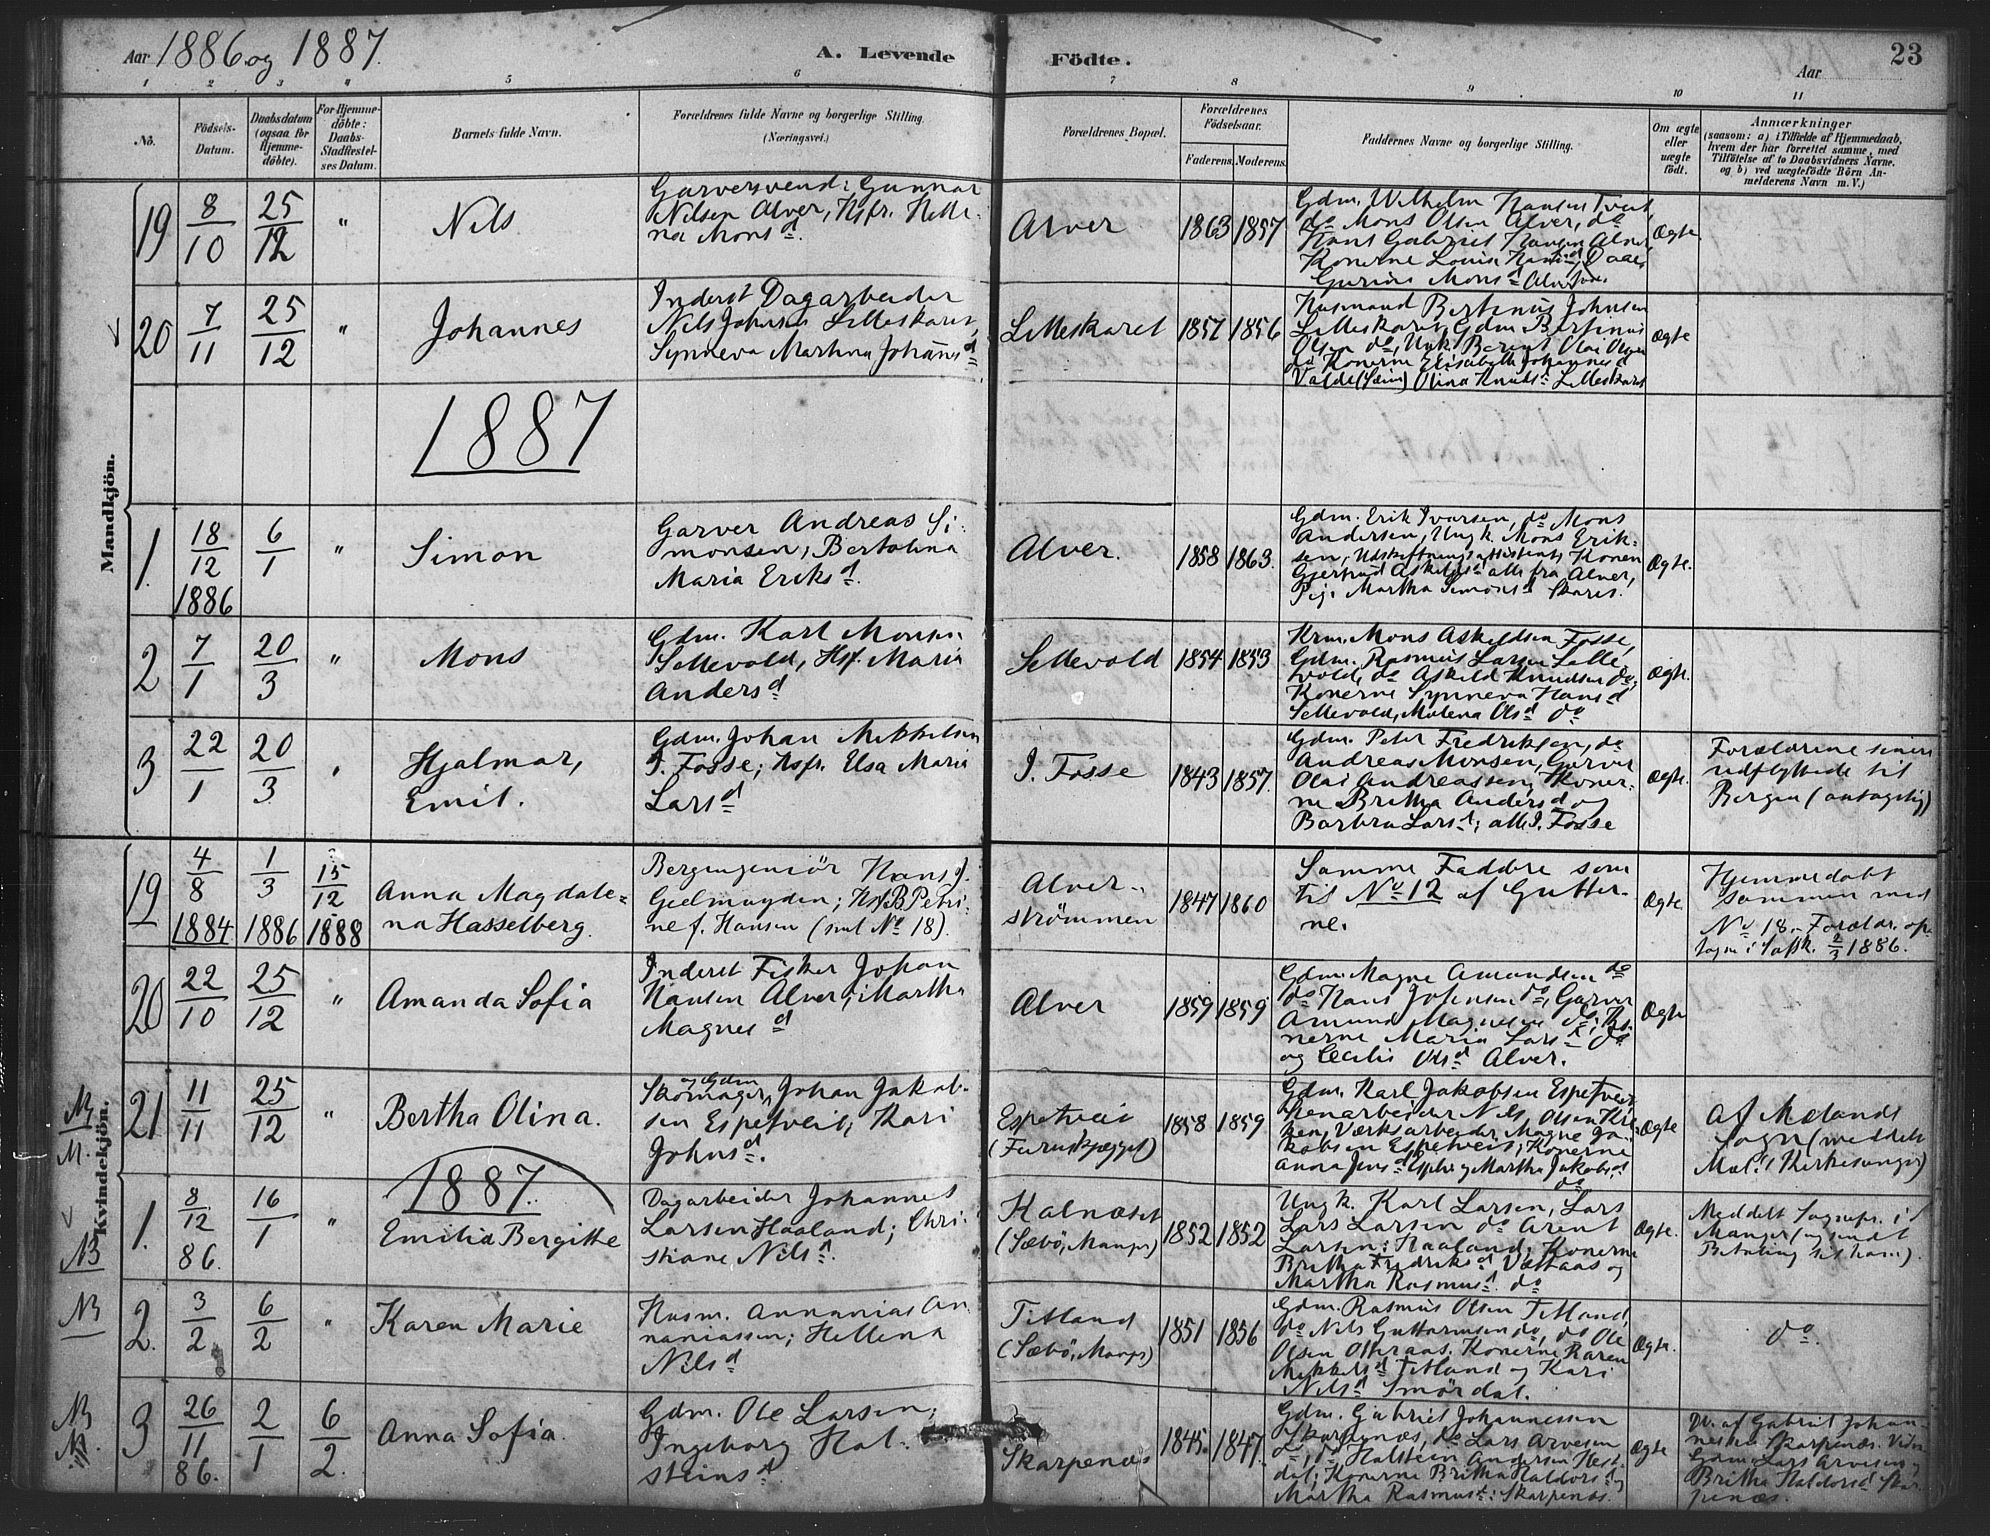 Aar 1886 og 1887.
A. Levende
Födte.
Aar
23
1 2 3 4 5 6 7 8 9 10 11
No.
Födsels-
Datum.
Daabsdatum
(ogsaa for
Hjemme-
döbte).
For Hjemme-
döbte:
Daabs-
Stadfæstel-
ses Datum.
Barnets fulde Navn.
Forældrenes fulde Navne og borgerlige Stilling.
(Næringsvei.)
Forældrenes Bopæl.
Forældrenes
Födselsaar.
Faderens. Moderens.
Faddernes Navne og borgerlige Stilling.
Om ægte
eller
uægte
födt.
Anmærkninger
(saasom: a) i Tilfælde af Hjemmedaab,
hvem der har forrettet samme, med
Tilföielse af to Daabsvidners Navne,
og b) ved uægtefödte Börn An-
melderens Navn m. V.)
Mandkjön.
19
8/10
25/12
"
Nils
Garversvend: Gunnar
Nilsen Alver, Hsfr. Helle-
na Monsd.
Alver
1863 1857
Gdm. Wilhelm Hansen Tveit,
do Mons Olsen Alver, do
Hans Gabriel Hansen Alver
Konerne Lovisa
Monsd Alver
Ægte
20
7/11
25/12
"
Johannes
Inderst Dagarbeider
Nils Johnsen Lilleskaret,
Synneva Martina Johansd
Lilleskaret
1857 1856
Husmand Bertinus Johnsen
Lilleskaret, Gdm Bertinus
Olsen do, Ungk. Berent Olai Olsen
do Konerne Elisabeth Johannesd
Valde (Seim) Olina Knutsd Lilleskaret
Ægte
1887
1.
18/12
1886
6/1
"
Simon
Garver Andreas Si-
monsen, Bertolina
Maria Eriksd.
Alver.
1858 1863.
Gdm. Erik Ivarsen, do Mons
Andersen, Ungk. Mons Erik-
sen, Udskiftningsassistent, Konen
Gjertrud Askildsd alle fra Alver,
Pig. Martha Simonsd Skaret.
Ægte.
2
7/1
20/3
"
Mons
Gdm. Karl Monsen
Sellevold, Hsf. Maria
Andersd
Sellevold
1854 1853
Krm. Mons Askildsen Fosse,
Gdm. Rasmus Larsen Selle-
vold, do Askild Knudsen do,
Konerne Synneva Hansd
Sellevold, Malena Olsd do
Ægte.
3
22/1
20/3
Hjalmar,
Emil.
Gdm. Johan Mikkelsen
I. Fosse; Hsfr. Elsa Maria
Larsd
I. Fosse
1843 1857.
Gdm. Peter Fredriksen, do
Andreas Monsen, Garver
Olai Andreassen, Koner-
ne Britha Andersd og
Barbra Larsd; alle I. Fosse
Ægte.
Forældrene senere
udflyttede til
Bergen (antagelig)
Kvindekjön.
19
4/8
1884
1/3
1886
15/12
1888
Anna Magdale-
na Hasselberg.
Bergingeniör Hans J.
Geelmuyden; Hsf B Petri-
ne f. Hansen (smt No 18).
Alver-
strömmen
1847 1860
Samme Faddere som
til No 12 af Gutter-
ne.
Ægte.
Hjemmedöbt
sammen med
No 18. Forældr. op-
tagne i Statsk. 2/3 1886.
20
22/10
25/12
"
Amanda Sofia
Inderst Fisker Johan
Hansen Alver; Martha
Magnesd
Alver
1859 1859
Gdm. Magne Amundsen do
do Hans Johnsen do, Garver
Amund Magnesen do; Ko-
nerne Maria Larsd do
og Cecilie Olsd Alver.
Ægte
21
11/11
25/12
"
Bertha Olina.
Skomager og Gdm Johan Jakob-
sen Espetveit, Kari
Johnsd.
Espetveit
(Furuskjægget)
1858 1859
Gdm. Karl Jakobsen Espetveit
Stenarbeider Nils Olsen
Værksarbeider Magne Ja-
kobsen Espetveit; Konerne
Anna Jensd og Martha Jakobsd
do
Ægte
Af Mælands
Sogn (meddelt
Mæl. Kirkesanger)
1887.
1.
8/12
86.
16/1
"
Emilia Bergitte
Dagarbeider Johannes
Larsen Haaland; Chri-
stiane Nilsd
Kalnæset
(Sæbö, Manger)
1852 1852
Ungk. Karl Larsen, Lars
Lars Larsen do Arent
Larsen; Haaland; Konerne
Britha Fredriksd Vættaas og
Martha Rasmusd do
Ægte.
Meddelt Sognepr. i
Manger (og sendt
Betaling til ham).
2.
3/2
6/2
"
Karen Marie
Husm. Annanias An-
naniassen; Hellena
Nilsd
Titland
(Sæbö, Manger)
1851 1856
Gdm. Rasmus Olsen Titland,
do Nils Guttormsen do, do Ole
Olsen Konerne Karen
Mikkelsd Titland og Kari
Nilsd Smördal.
Ægte.
do.
3
26/11
86.
2/1
6/2.
Anna Sofia.
Gdm. Ole Larsen,
Ingeborg Hal-
steinsd
Skarpenæs
1845. 1847.
Gdm. Gabriel Johannessen
Skarpenæs, do Lars Arvesen
do, do Halstein Andersen Hest-
dal; Konerne Britha Haldorsd og
Martha Rasmusd: Skarpenæs.
Ægte
Dl. af Gabriel Johan-
nessen Skarpenæs. Vidn.
Gdm. Lars Arvesen og
Britha Haldorsd Skar-
penæs.
NB
M.
NB
NB
NB